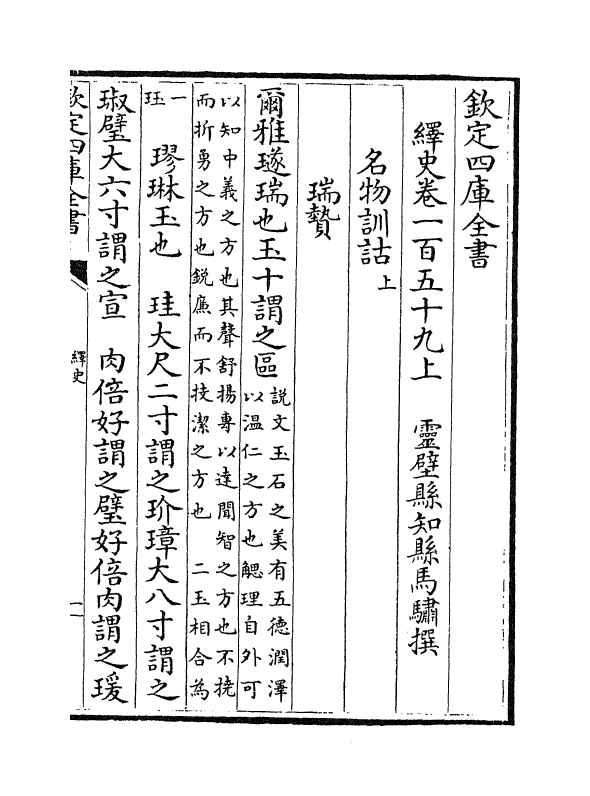 欽定四庫全書
繹史卷一百五十九上　靈壁縣知縣馬驌撰
名物訓詁上
瑞贄
爾雅璲瑞也玉十謂之區
説文玉石之美有五德潤澤
以温仁之方也䚡理自外可
以知中義之方也其聲舒揚専以逹聞智之方也不撓
而折勇之方也鋭廉而不技潔之方也　二玉相合為
一
珏
璆琳玉也　珪大尺二寸謂之玠璋大八寸謂之
琡璧大六寸謂之宣　肉倍好謂之璧好倍肉謂之瑗
欽定四庫全書
繹史
一